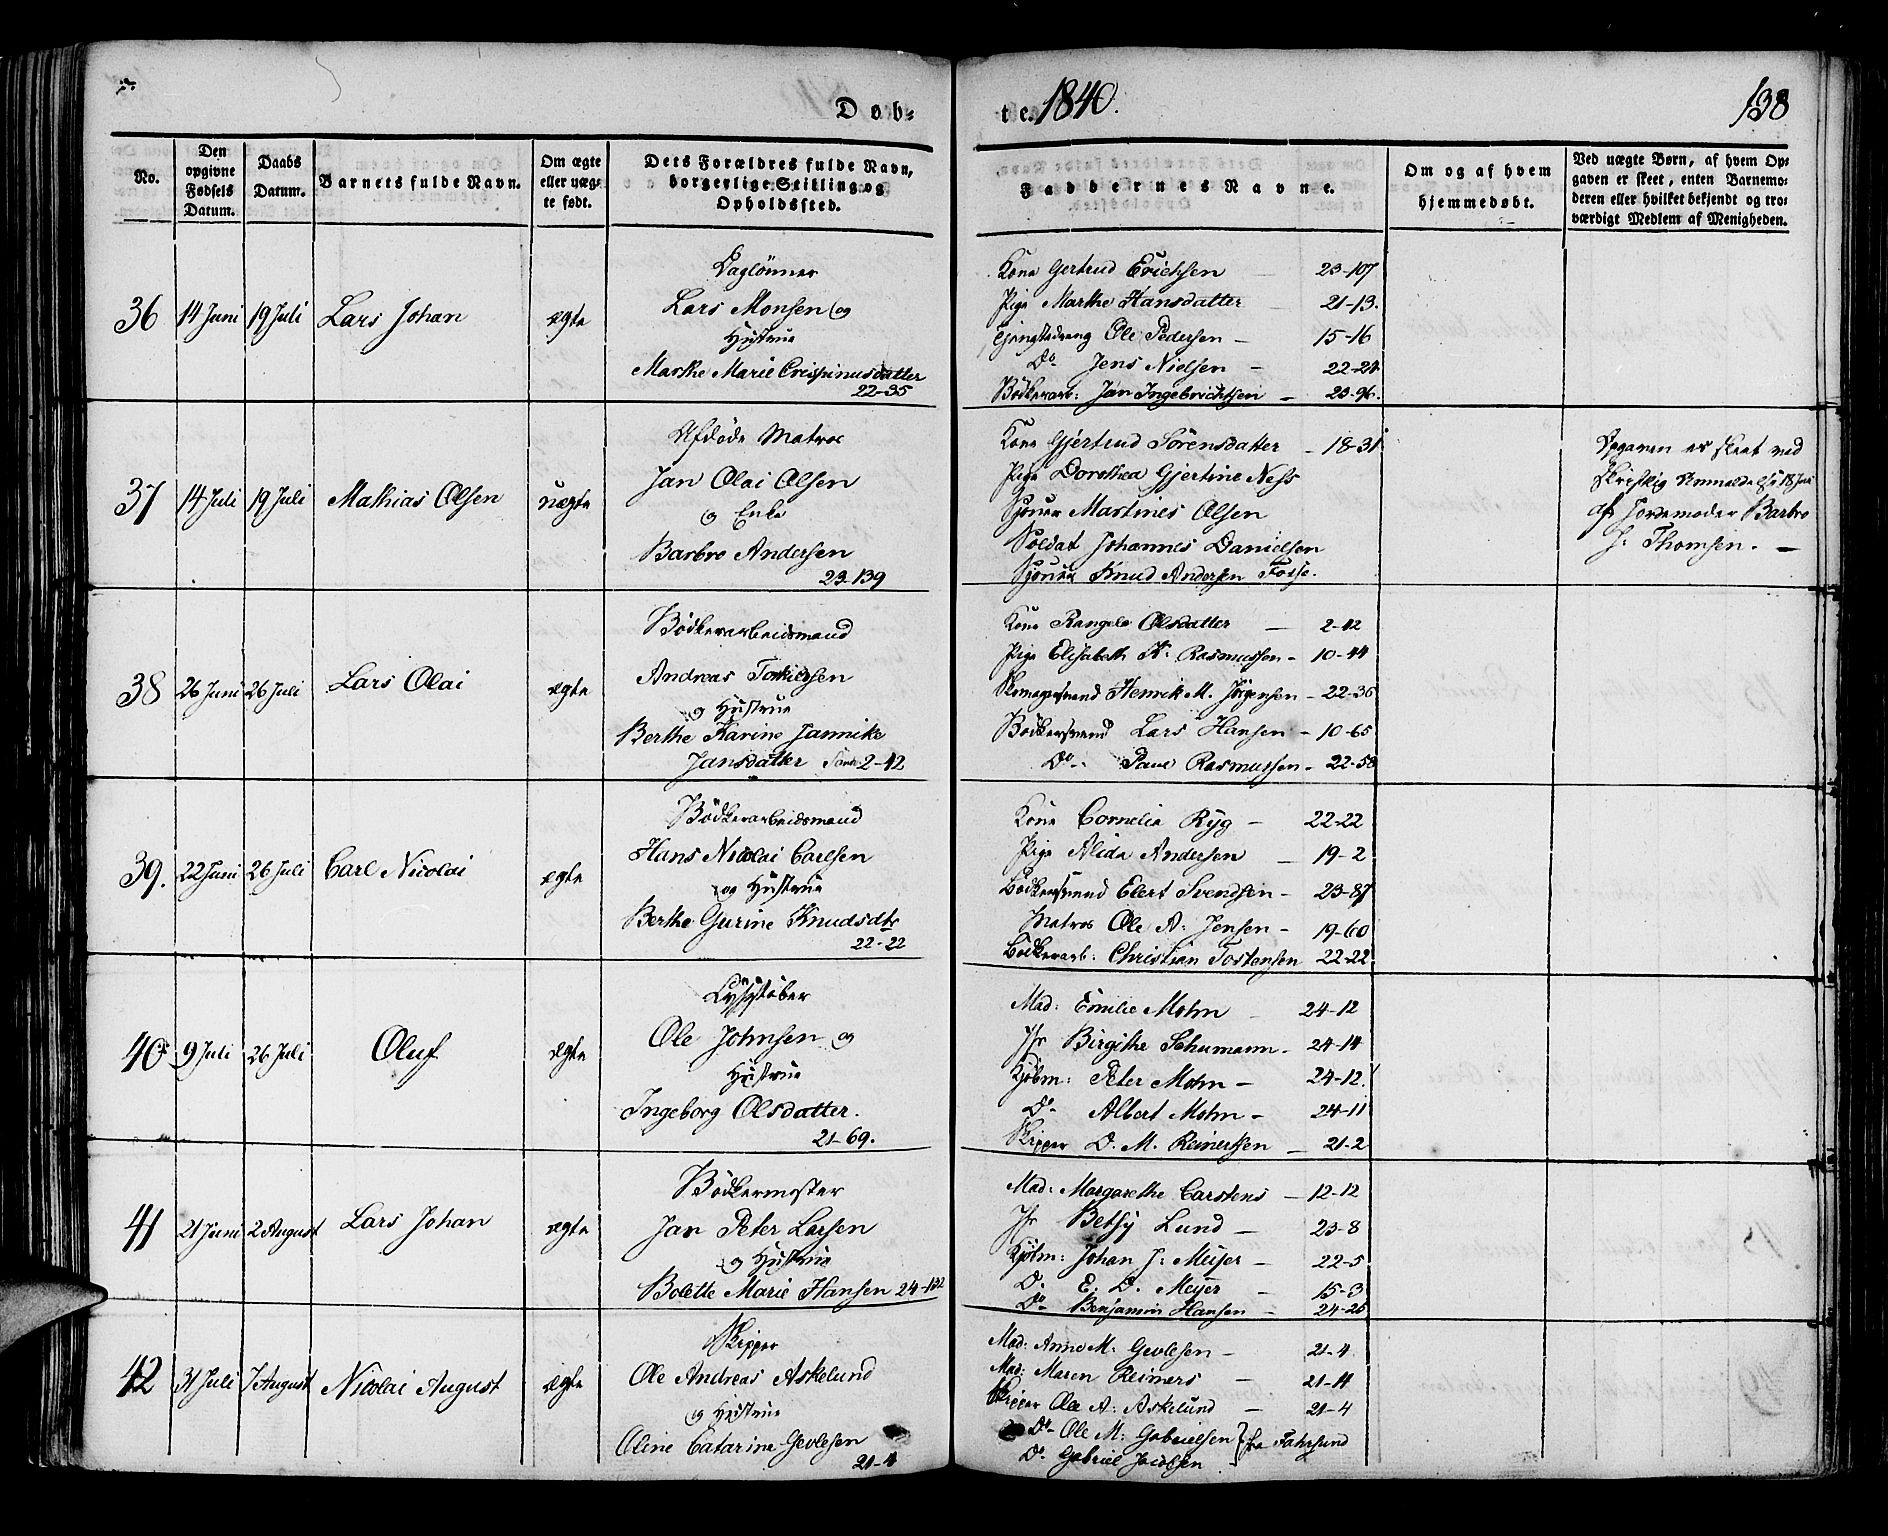 Døb-
te. 1840.
138
No.
Den opgivne Fødsels Datum.
Daabs Datum.
Barnets fulde Navn.
Om ægte eller uægte født.
Dets Forældres fulde Navn, borgerlige Stilling og Opholdssted.
Faddernes Navne.
Om og af hvem hjemmedøbt.
Ved uægte Børn, af hvem Opgaven er skeet, enten Barnemoderen eller hvilket bekjendt og troværdigt Medlem af Menigheden.
36
14 Juni
19 Juli
Lars Johan
ægte
Daglönner
Lars Monsen og
Hustrue
Marthe Marie Crispinusdatter
22-35
Kone Gertrud Erichsen 23-107
Pige Marthe Hansdatter 21-13.
Ole Pedersen - 15-16
Do Jens Nielsen - 22-24
Bödkerarb: Jan Ingebrichtsen - 23-96.
37
14 Juli
19 Juli
Mathias Olsen
uægte
Afdöde Matros
Jan Olai Olsen
og Enke
Barbro Andersen
23-139
Kone Gjertrud Sörensdatter - 18-31
Pige Dorothea Gjertine Ness
Martines Olsen
Soldat Johannes Danielsen
Knud Andersen Fosse.
Opgaven er skeet ved
Skriftlig Anmeldelse 18 Juli
af Jordemoder Barbro
J. Thomsen. -
38
26 Juni
26 Juli
Lars Olai
ægte
Bödkerarbeidsmand
Andreas Torkildsen
og Hustrue
Berthe Karine Jannike
Jansdatter 2-42
Kone Rangele Olsdatter - 2-42
Pige Elisabeth K: Rasmussen - 10-44
Skomagersvend Henrik M. Jörgensen - 22-36
Bödkersvend Lars Hansen - 10-65
Do. Rasmussen - 22-58
39.
22 Juni
26 Juli
Carl Nicolai
ægte
Bödkerarbeidsmand
Hans Nicolai Carlsen
og Hustrue
Berthe Gurine Knudsdtr
22-22
Kone Cornelia Ryg - 22-22
Pige Alida Andersen - 19-2
Bödkersvend Elert Svendsen - 23-87
Matros Ole A: Jensen - 19-60
Bödkerarb: Christian Tostensen 22-22.
40
9 Juli
26 Juli
Oluf
ægte
Lysstöber
Ole Johnsen og
Hustrue
Ingeborg Olsdatter.
21-69.
Mad: Emilie Mohn - 24-12
Jfr Birgithe Schumann - 24-14
Kjöbm: Peter Mohn - 24-12.
Do Albert Mohn - 24-11
Skipper D. M. Reinertsen - 21-2
41
21 Juni
2 August
Lars Johan
ægte
Bödkermester
Jan Peter Larsen
og Hustrue
Bolette Marie Hansen 24-122
Mad: Margarethe Carstens - 12-12
Jfr Betsy Lund - 23-8
Kjöbm: Johan J: Meyer - 22-5
Do E. D. Meyer - 15-3
Do Benjamin Hansen - 24-25
42
31 Juli
7 August
Nicolai August
ægte
Skipper
Ole Andreas Askelund
og Hustrue
Oline Catarine Gevlesen
21-4
Mad: Anne M. Gevlesen - 21-4
Mad: Maren Reimers - 21-14
Skipper Ole A: Askelund - 21-4
Do Ole M: Gabrielsen } fra Fahrsund
Do Gabriel Jacobsen